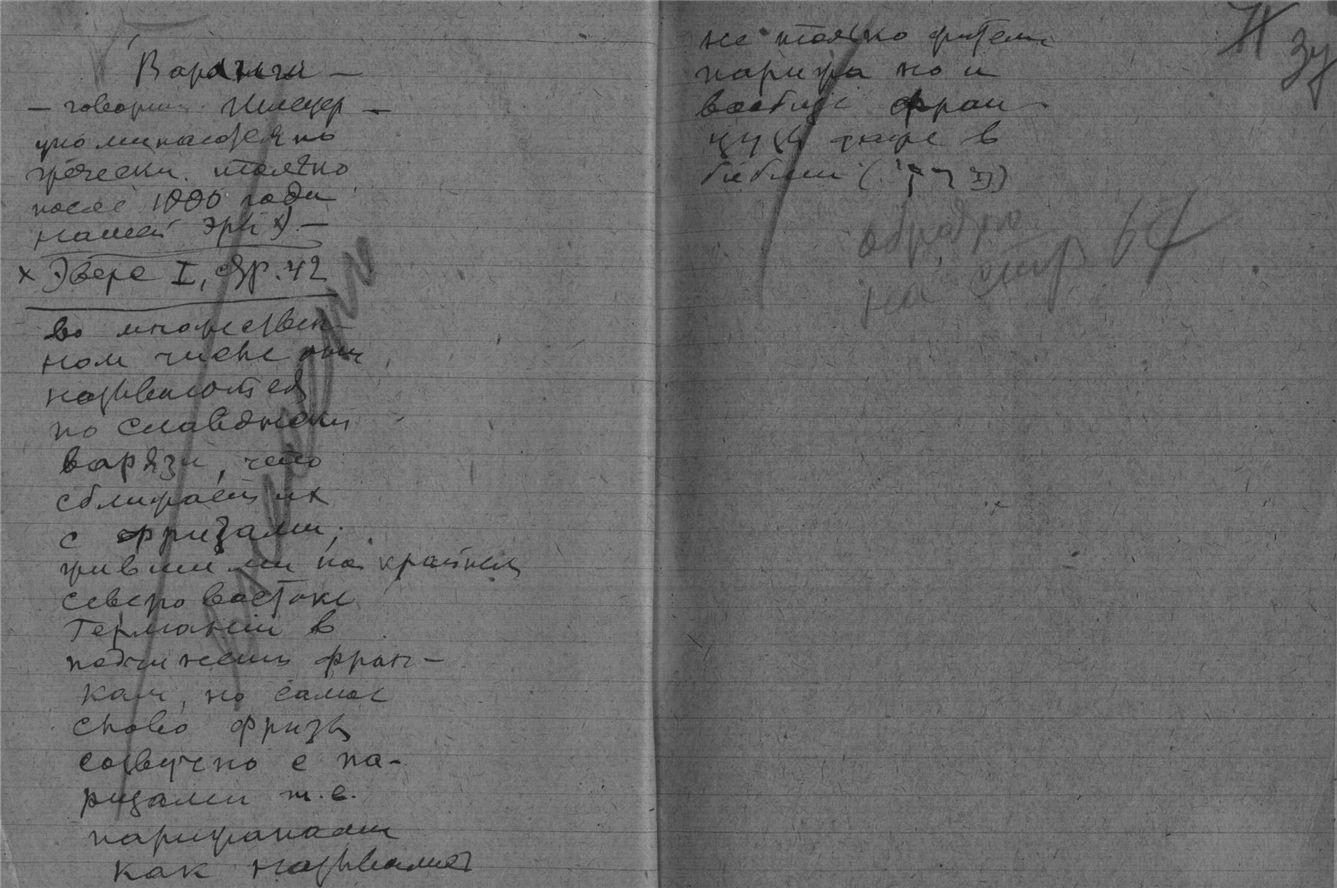 Варяги —
— говорит Шлецер —
упоминаются по
гречески только
после 1000 года
нашей эры х) —
х Эверс I, стр. 42
во множествен-
ном числе они
называются
по славянски
варязи, что
сближает их
с фризами,
жившими на крайнем
северо востоке
Германии в
подчинении фран-
кам, но самое
слово фризы
созвучно с па-
ризами т.е.
парижанами
как назывались
не только жители
парижа но и
вообще фран
цузы даже в
библии (
обратно
на стр 64